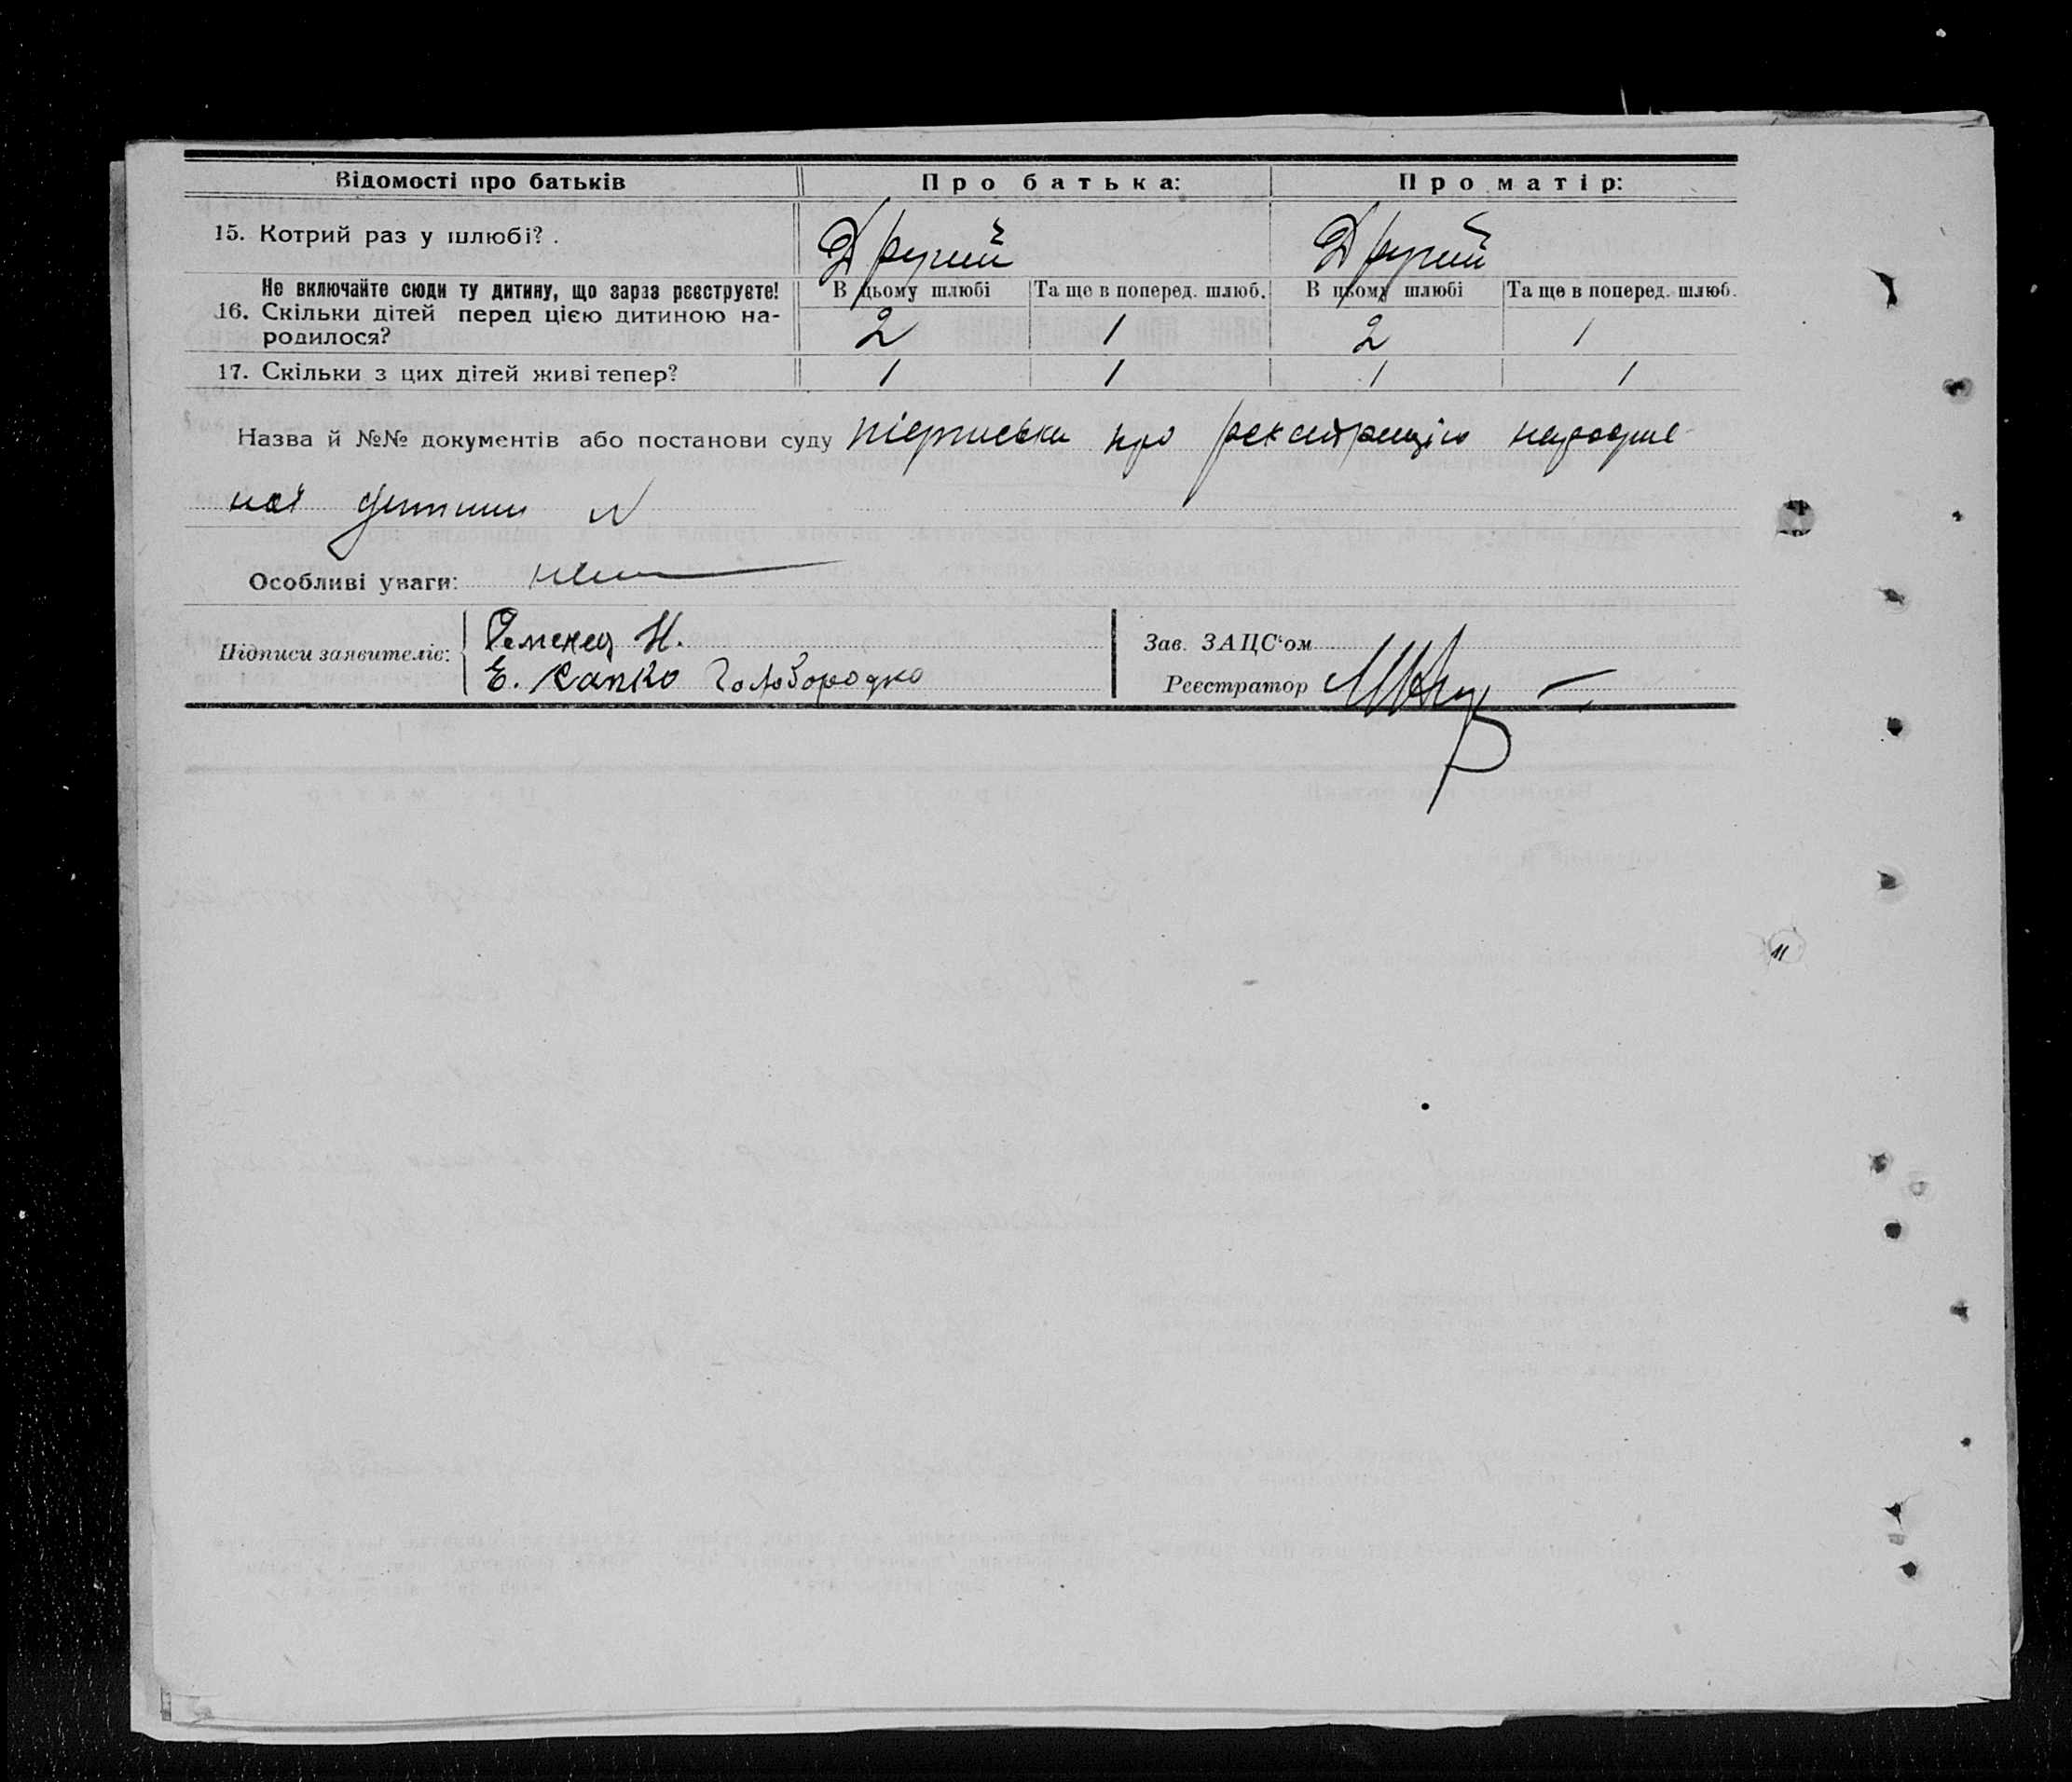 Відомості про батьків Про батька: Про матір:
15. Котрий раз у шлюбі? . Другий Другий
Не включайте сюди ту дитину, що зараз реєструєте! В цьому шлюбі Та ще в поперед. шлюб. В цьому шлюбі Та ще в поперед. шлюб.
16. Скільки дітей перед цією дитиною на-
родилося? 2 1 2 1
17. Скільки з цих дітей живі тепер? 1 1 1 1
Назва й №№ документів або постанови суду про
ної дитини
Особливі уваги:
Підписи заявителів: Н.
Е. Голобородко
Зав. ЗАЦС'ом
Реєстратор